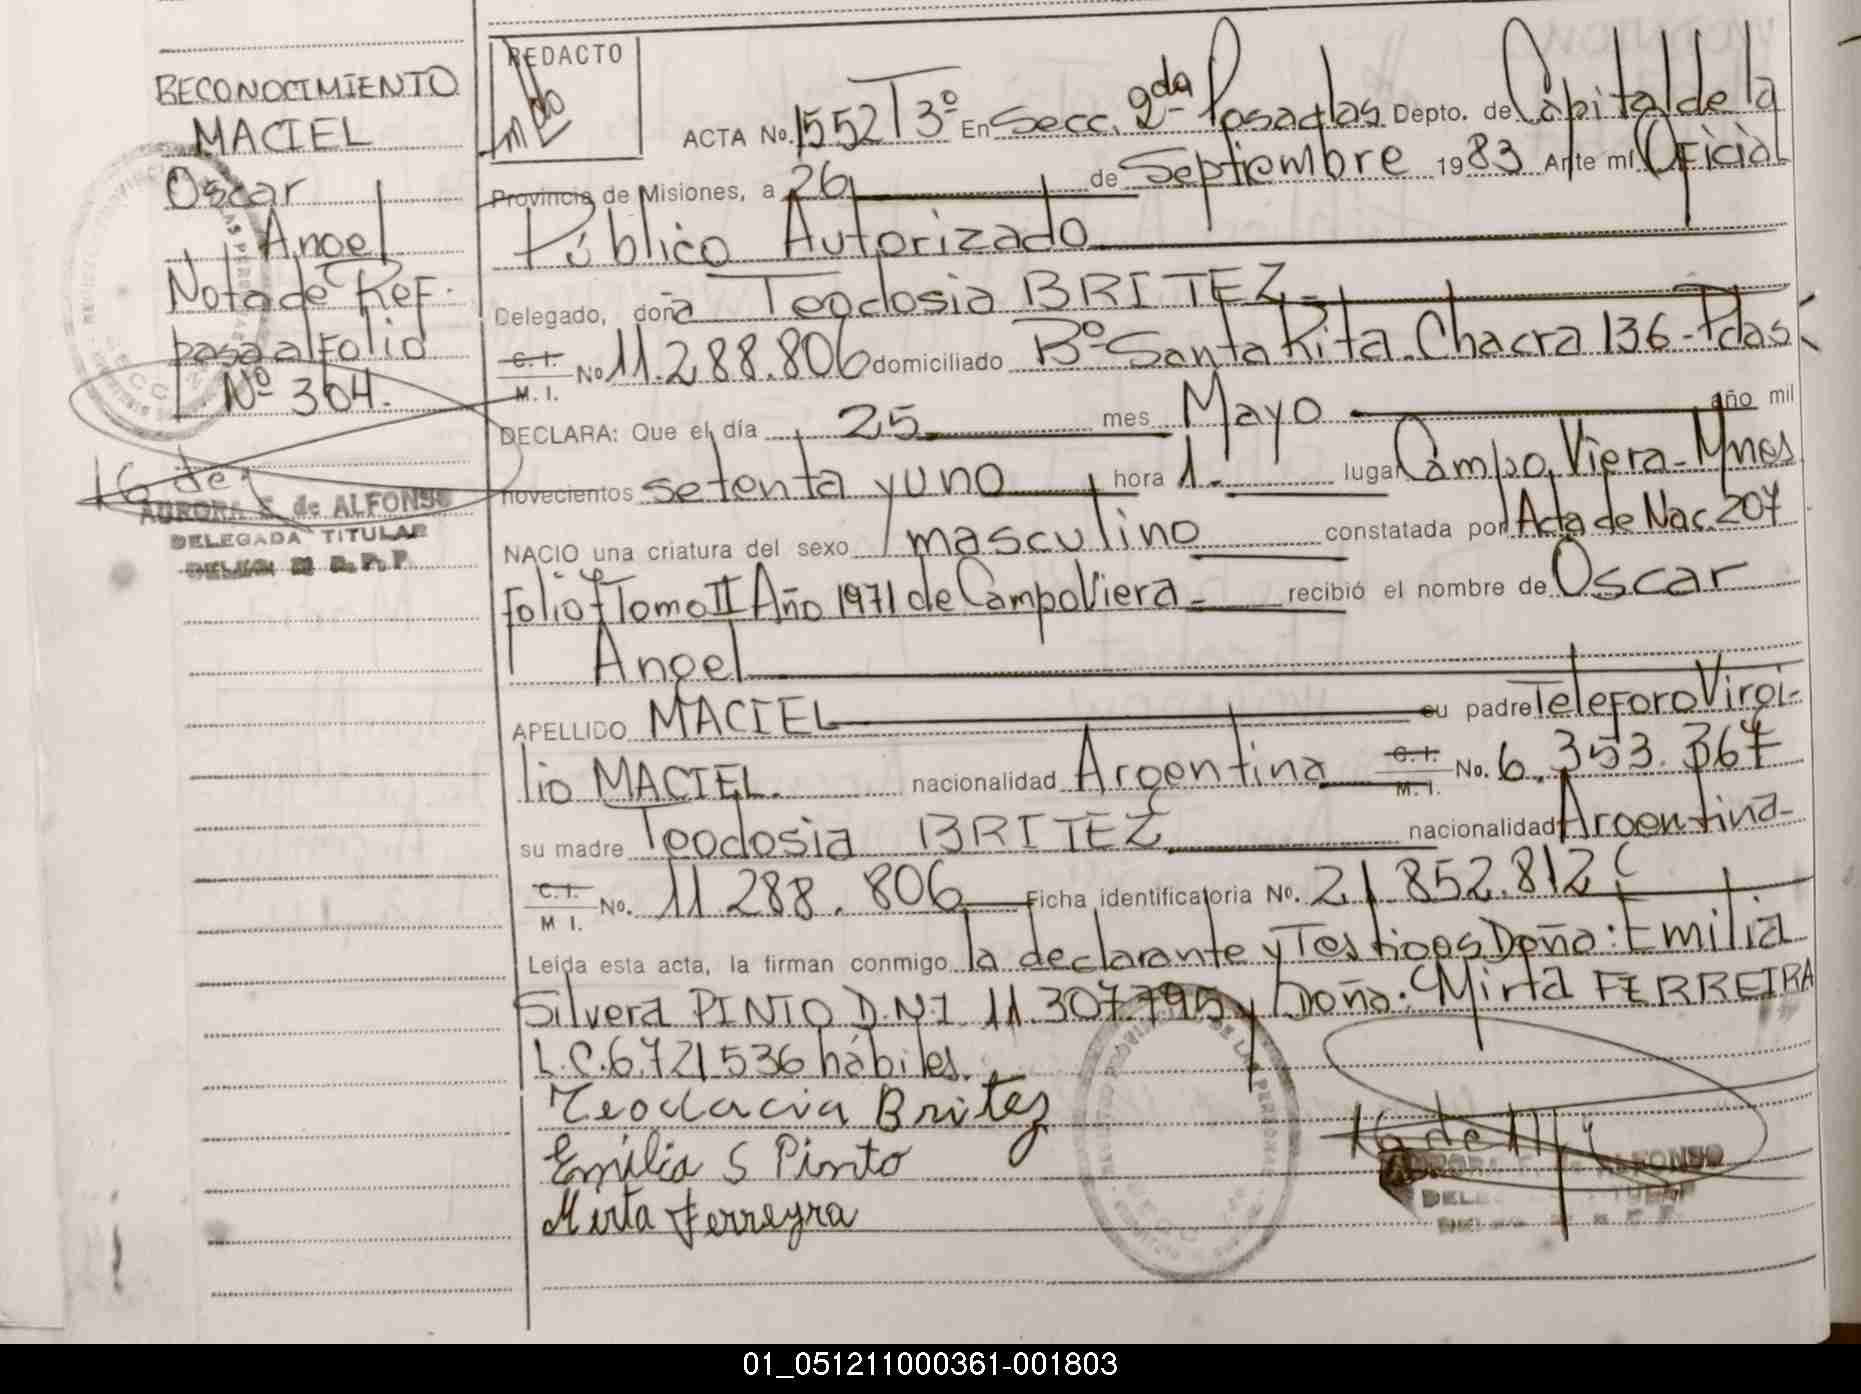 RECONOCIMIENTO
MACIEL
Oscar
Angel
Nota de Ref.
pasa al Folio
Nº 304.
AURORA E. de ALFONSO
DELEGADA TITULAR
REDACTO
ACTA No. 1552 Tº 3º En Secc. 2da Posadas Depto. de Capital de la
Provincia de Misiones, a 26 de Septiembre 1983 Ante mí Oficial
Público Autorizado
Delegado, doña Teodosia BRITEZ
C. I. M. I. No 11.288.806 domiciliado Bº Santa Rita. Chacra 136 - Pdas
DECLARA: Que el día 25 mes Mayo año mil
novecientos setenta y uno hora 1. lugar Campo Viera - Mnes
NACIO una criatura del sexo masculino constatada por Acta de Nac. 207
Folio Tomo II Año 1971 de Campo Viera - recibió el nombre de Oscar
Angel
APELLIDO MACIEL su padre Teleforo Virgi-
lio MACIEL. nacionalidad Argentina C. I. M. I. No. 6.353.367
su madre Teodosia BRITEZ nacionalidad Argentina-
C. I. M I. No. 11.288.806 Ficha identificatoria No. 21.852.812
Leída esta acta, la firman conmigo la declarante y Testigos Doña: Emilia
Silvera PINTO D.N.I. 11.307.795 y Doña: Mirta FERREIRA
L.C. 6.721.536 hábiles.
Teodacia Britez
Emilia S Pinto
Mirta Ferreyra
AURORA E. de ALFONSO
DELEGADA TITULAR
01_051211000361-001803